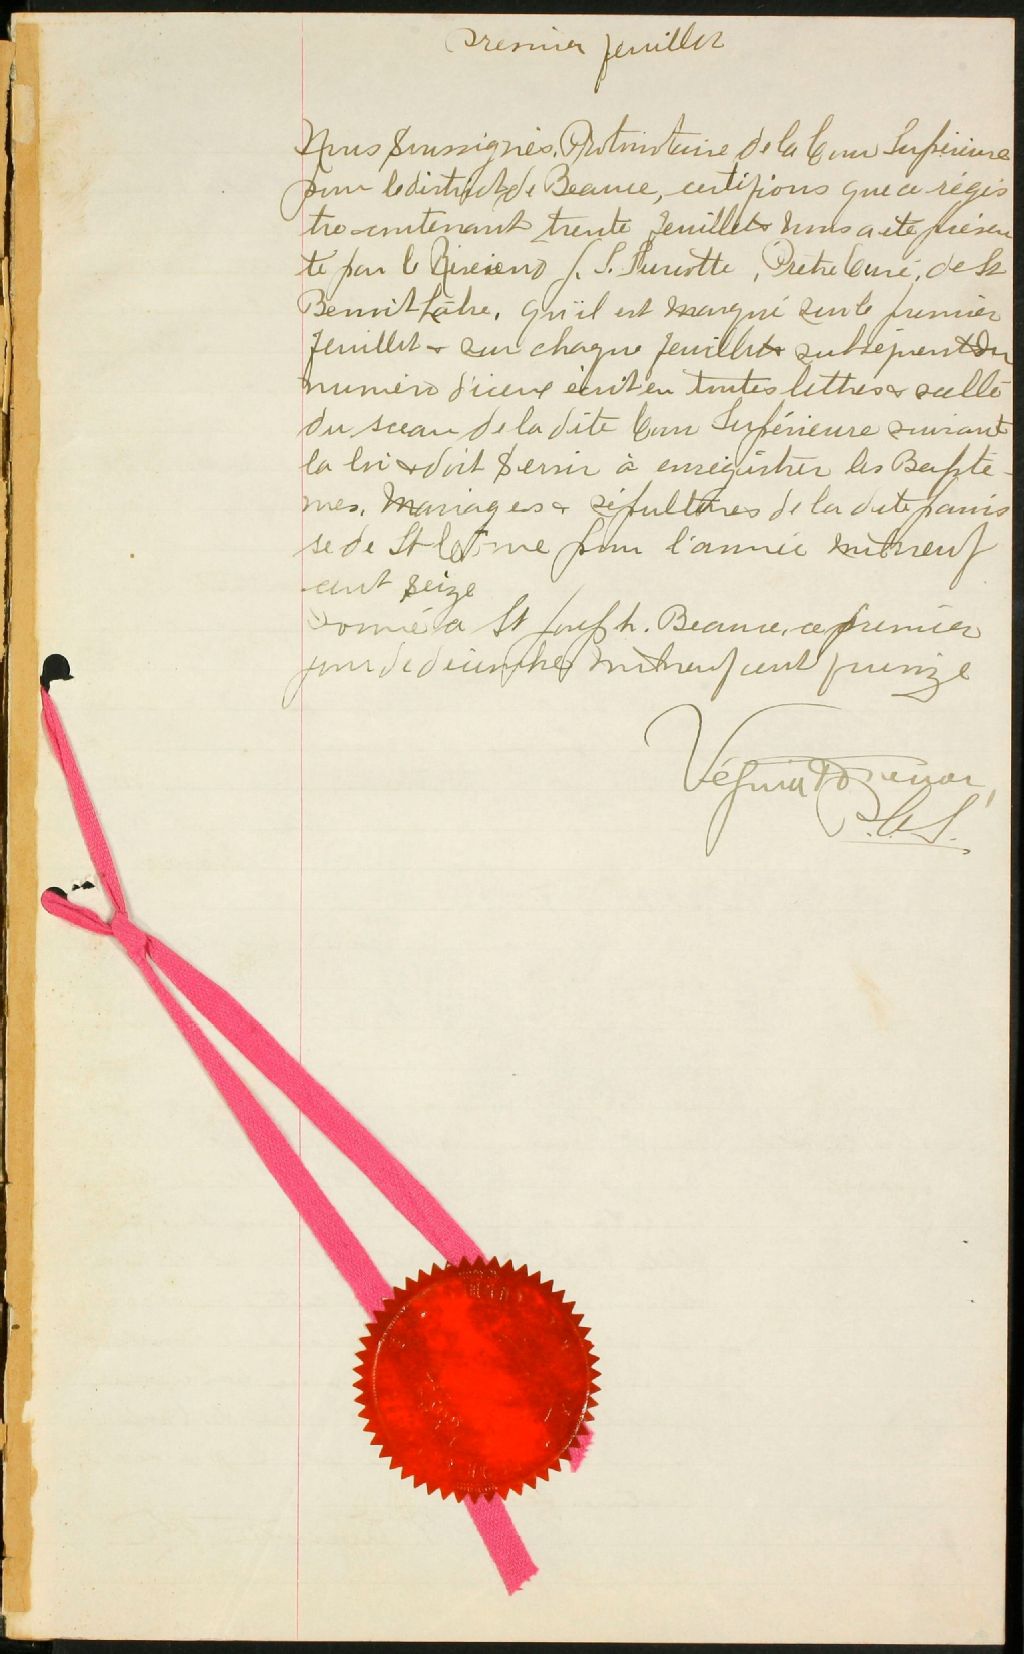 Premier feuillet
Nous Soussignés, Protonotaire de la Cour Supérieure
pour le district de Beauce, certifions que ce régis
tre contenant trente feuillets nous a été présen
té par le Révérend J. S. Turcotte, Prêtre Curé, de St
Benoit Labre, qu'il est marqué sur le premier
feuillet & sur chaque feuillets subséquent du
numéro d'iceux écrit en toutes lettres & scellé
du sceau de la dite Cour Supérieure suivant
la loi & doit servir à enregistrer les Baptê-
mes, Mariages & sépultures de la dite parois
se de St pour l'année mil neuf
cent seize
Donné à St Joseph, Beauce, ce premier
jour de décembre mil neuf cent quinze
Vézina &
P.C.S.